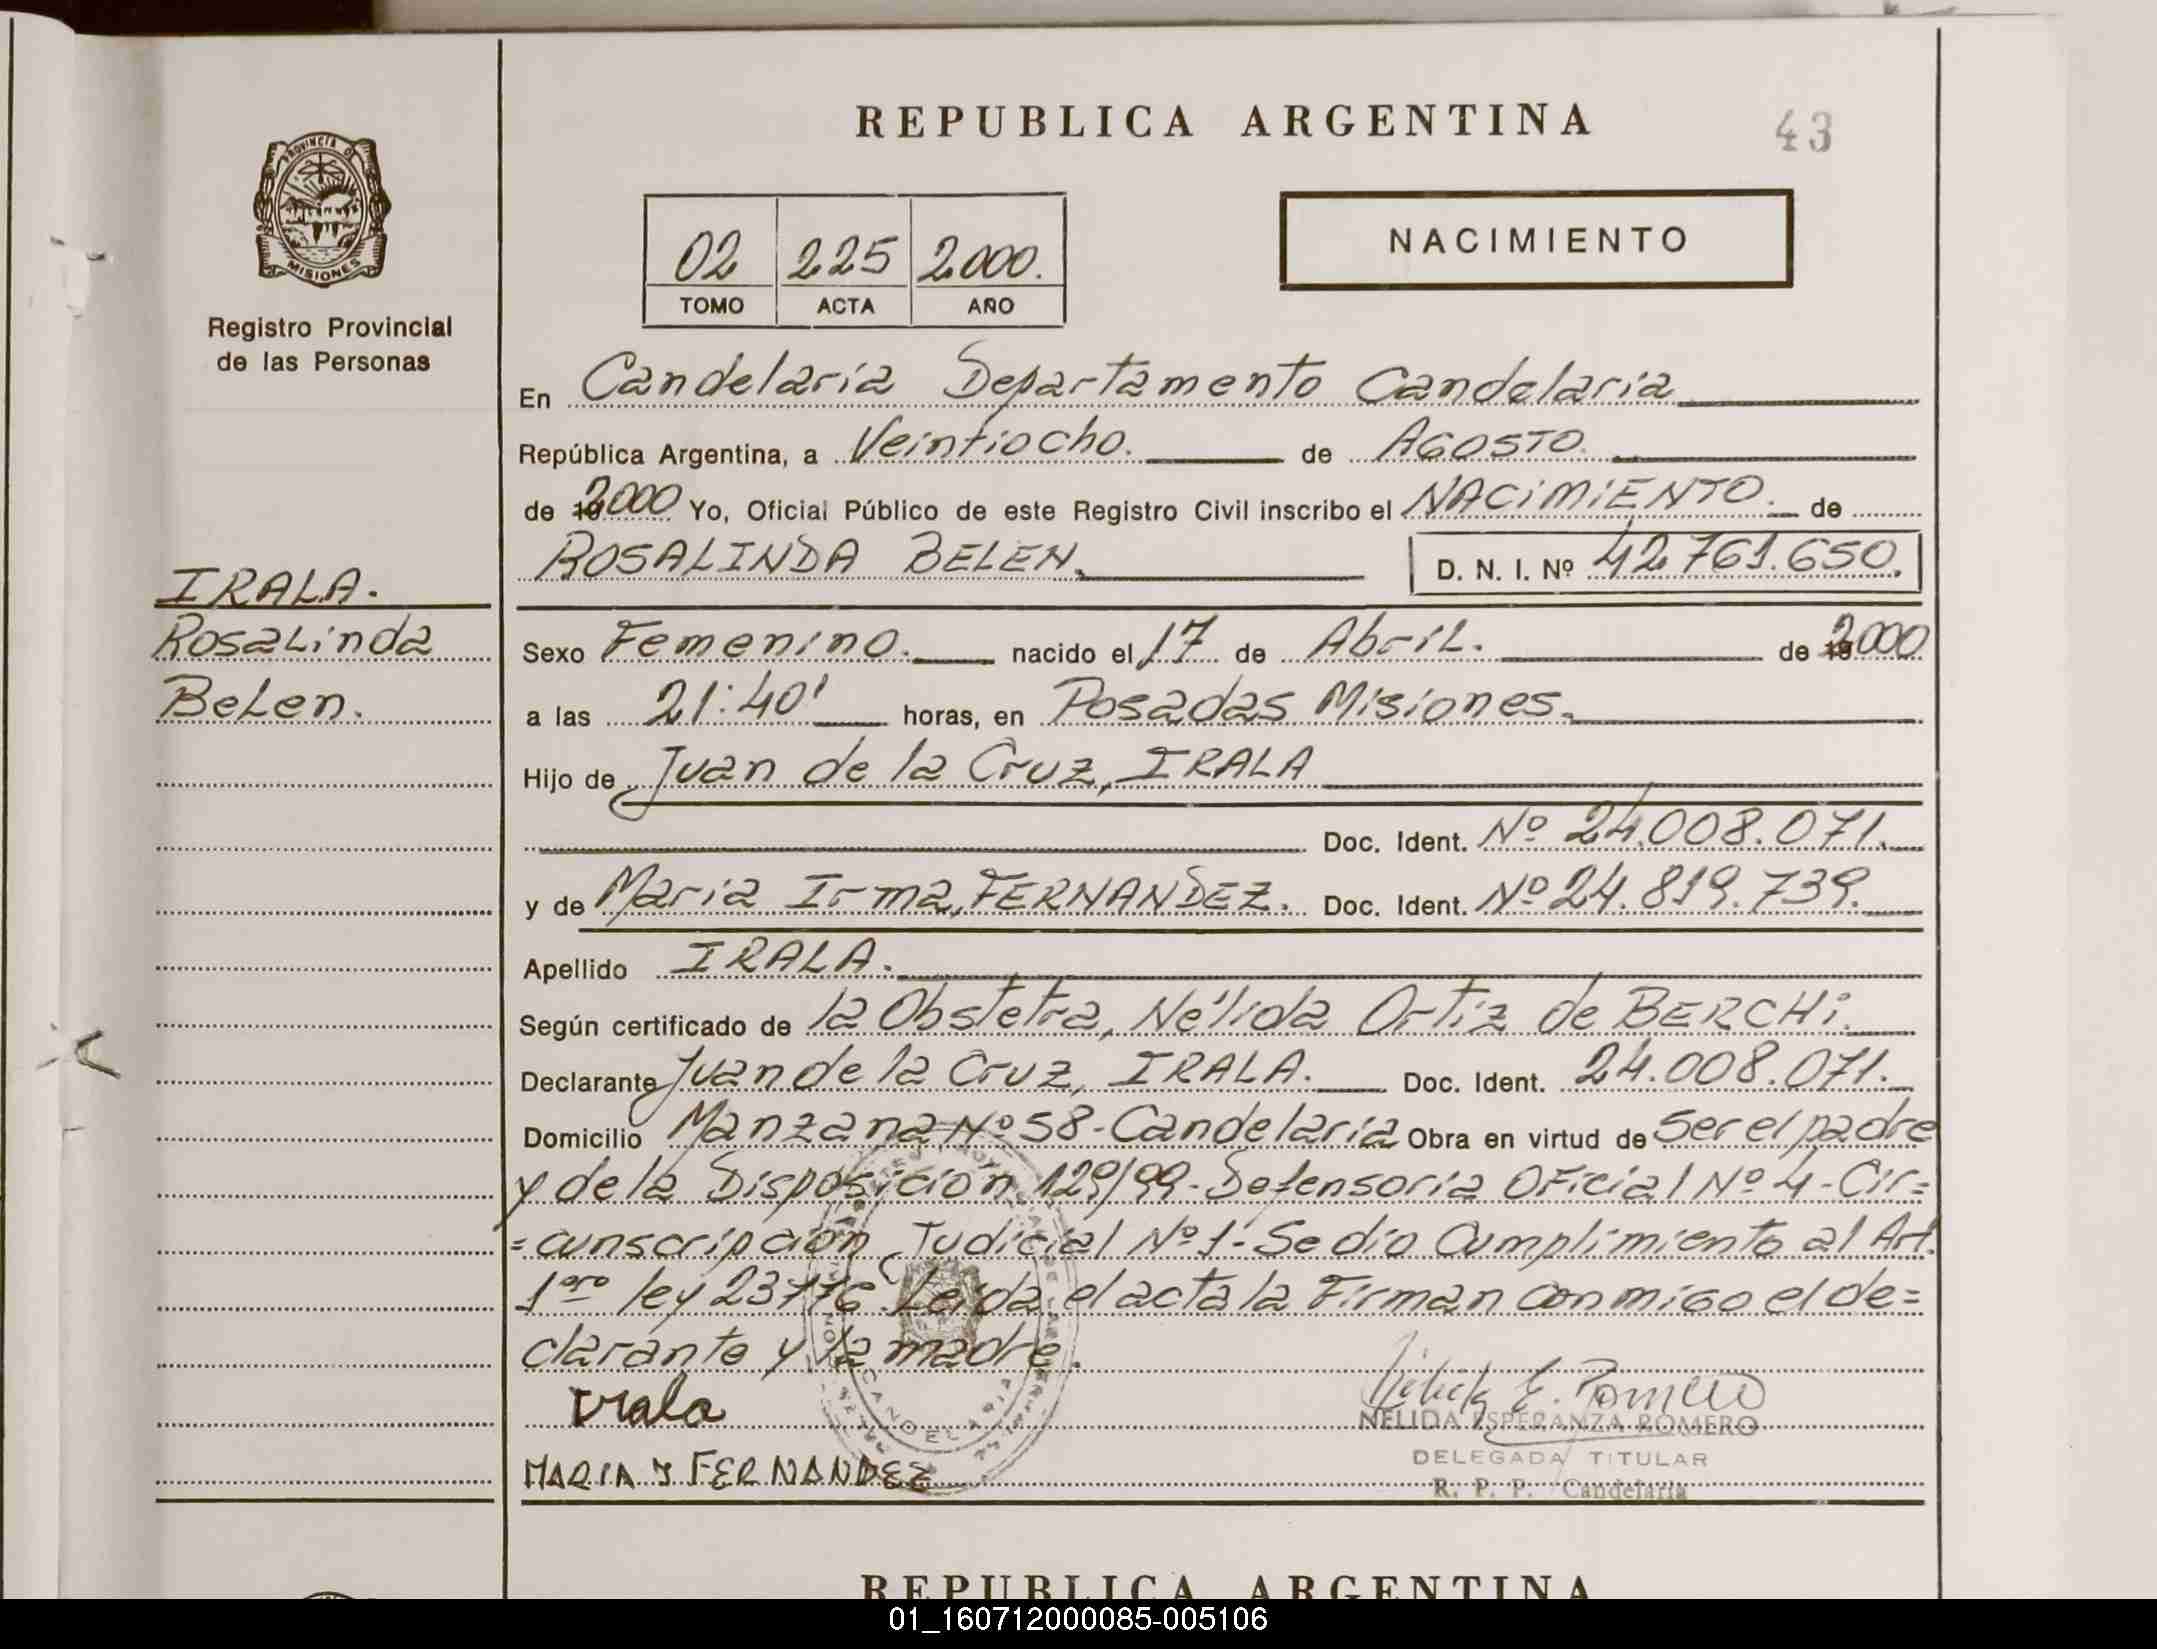 REPUBLICA ARGENTINA
43
PROVINCIA DE
MISIONES
Registro Provincial
de las Personas
02 225 2000.
TOMO ACTA AÑO
NACIMIENTO
En Candelaria Departamento Candelaria
República Argentina, a Veintiocho. de AGOSTO.
de 2000 Yo, Oficial Público de este Registro Civil inscribo el NACIMIENTO. de
ROSALINDA BELEN. D. N. I. Nº 42.761.650.
IRALA.
Rosalinda
Belen.
Sexo Femenino. nacido el 17 de Abril. de 2000
a las 21:40' horas, en Posadas Misiones.
Hijo de Juan de la Cruz, IRALA
Doc. Ident. Nº 24.008.071.
y de Maria Irma, FERNANDEZ. Doc. Ident. Nº 24.819.739.
Apellido IRALA.
Según certificado de la Obstetra, Nélida Ortiz de BERCHI.
Declarante Juan de la Cruz, IRALA. Doc. Ident. 24.008.071.
Domicilio Manzana Nº 58-Candelaria Obra en virtud de Ser el padre
y de la Disposición 129/99-Defensoria Oficial Nº 4-Cir=
=cunscripción Judicial Nº 1-Se dio Cumplimiento al Art.
1ero ley 23776. Leida el acta la Firman conmigo el de=
clarante y la madre.
Irala
MARIA I FERNANDEZ
CANDELARIA
Nélida E. Romero
NELIDA ESPERANZA ROMERO
DELEGADA TITULAR
R. P. P. Candelaria
REPUBLICA ARGENTINA
01_160712000085-005106